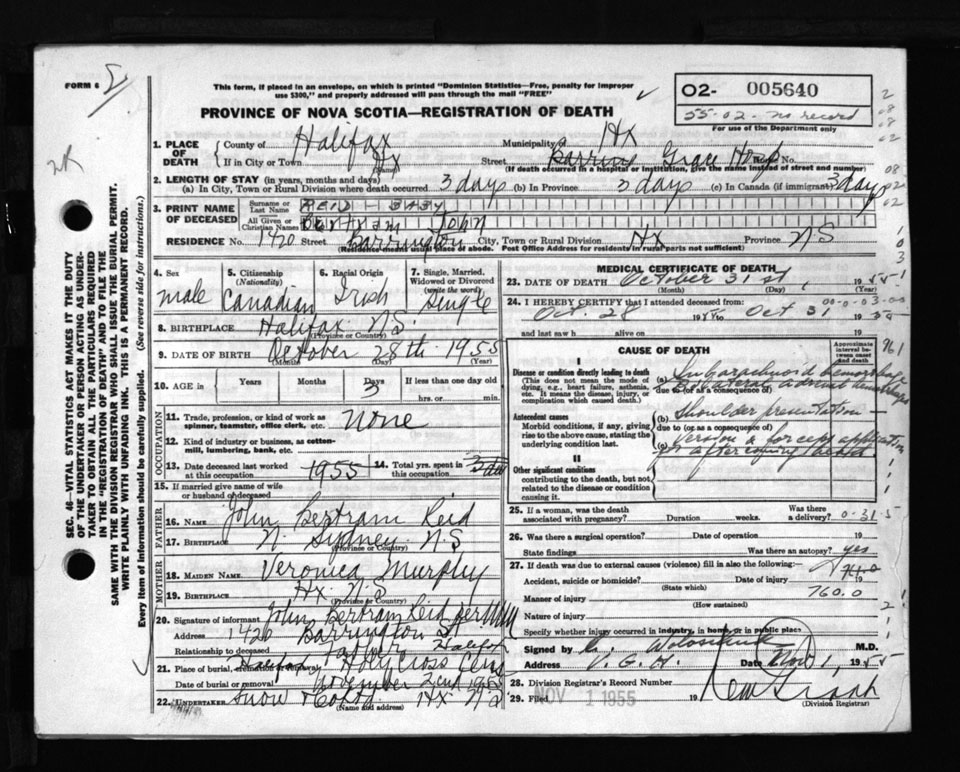 FORM 6
This form, if placed in an envelope, on which is printed "Dominion Statistics—Free, penalty for improper
use $300," and properly addressed will pass through the mail "FREE"
PROVINCE OF NOVA SCOTIA—REGISTRATION OF DEATH
02- 005640
55-02- no record
For use of the Department only
1. PLACE OF DEATH
County of Halifax Municipality of Hx
If in City or Town Hx Street Grace No.
(Name) (If death occurred in a hospital or institution, give the name instead of street and number)
2. LENGTH OF STAY (in years, months and days)
(a) In City, Town or Rural Division where death occurred 3 days (b) In Province 3 days (c) In Canada (if immigrant) 3 days
3. PRINT NAME OF DECEASED
Surname or Last Name REID - BABY
All Given or Christian Names Bertram John
RESIDENCE No. 1420 Street Barrington City, Town or Rural Division Hx Province NS
(Residence means usual place of abode. Post Office Address for residents in rural parts not sufficient)
4. Sex male
5. Citizenship (Nationality) Canadian
6. Racial Origin Irish
7. Single, Married, Widowed or Divorced (write the word) Single
8. BIRTHPLACE Halifax N.S.
(Province or Country)
9. DATE OF BIRTH October 28th 1955
(Month) (Day) (Year)
10. AGE in Years Months Days 3 If less than one day old
hrs. or min.
OCCUPATION
11. Trade, profession, or kind of work as
spinner, teamster, office clerk, etc. None
12. Kind of industry or business, as cotton-
mill, lumbering, bank, etc.
13. Date deceased last worked
at this occupation 1955
14. Total yrs. spent in
this occupation
15. If married give name of wife
or husband of deceased
FATHER
16. NAME John Bertram Reid
17. BIRTHPLACE N. Sydney N.S
(Province or Country)
MOTHER
18. MAIDEN NAME Veronica Murphy
19. BIRTHPLACE Hx N.S
(Province or Country)
20. Signature of informant John Bertram Reid per
Address 1420 Barrington St Halifax
Relationship to deceased father
21. Place of burial, cremation or removal Halifax Holy Cross Cem
Date of burial or removal November 2nd 1955
22. UNDERTAKER Snow Hx N.S
(Name and address)
MEDICAL CERTIFICATE OF DEATH
23. DATE OF DEATH October 31st, 1955
(Month) (Day)
24. I HEREBY CERTIFY that I attended deceased from
Oct. 28 1955 to Oct 31 1955
and last saw h alive on 19
CAUSE OF DEATH
Approximate interval between onset and death
I
Disease or condition directly leading to death
(This does not mean the mode of dying, e.g., heart failure, asthenia, etc. It means the disease, injury, or complication which caused death.)
(a) Subarachnoid hemorrhage
bilateral adrenal hemorrhages
due to (or as a consequence of)
Antecedent causes
Morbid conditions, if any, giving rise to the above cause, stating the underlying condition last.
(b) Shoulder presentation -
due to (or as a consequence of)
(c) Version & forceps application
after coming head
II
Other significant conditions
contributing to the death, but not related to the disease or condition causing it.
25. If a woman, was the death
associated with pregnancy? Duration weeks. Was there a delivery?
26. Was there a surgical operation? Date of operation 19
State findings Was there an autopsy? yes
27. If death was due to external causes (violence) fill in also the following:
Accident, suicide or homicide? Date of injury 19
(State which)
Manner of injury 760.0
(How sustained)
Nature of injury
Specify whether injury occurred in industry, in home, or in public place
Signed by M.D.
Address V. G. H. Nov 1, 1955
28. Division Registrar's Record Number
29. Filed NOV 1 1955 19
(Division Registrar)
SEC. 46—VITAL STATISTICS ACT MAKES IT THE DUTY
OF THE UNDERTAKER OR PERSON ACTING AS UNDER-
TAKER TO OBTAIN ALL THE PARTICULARS REQUIRED
IN THE "REGISTRATION OF DEATH" AND TO FILE THE
SAME WITH THE DIVISION REGISTRAR WHO SHALL ISSUE THE BURIAL PERMIT.
WRITE PLAINLY WITH UNFADING INK. THIS IS A PERMANENT RECORD.
Every item of information should be carefully supplied. (See reverse side for instructions.)